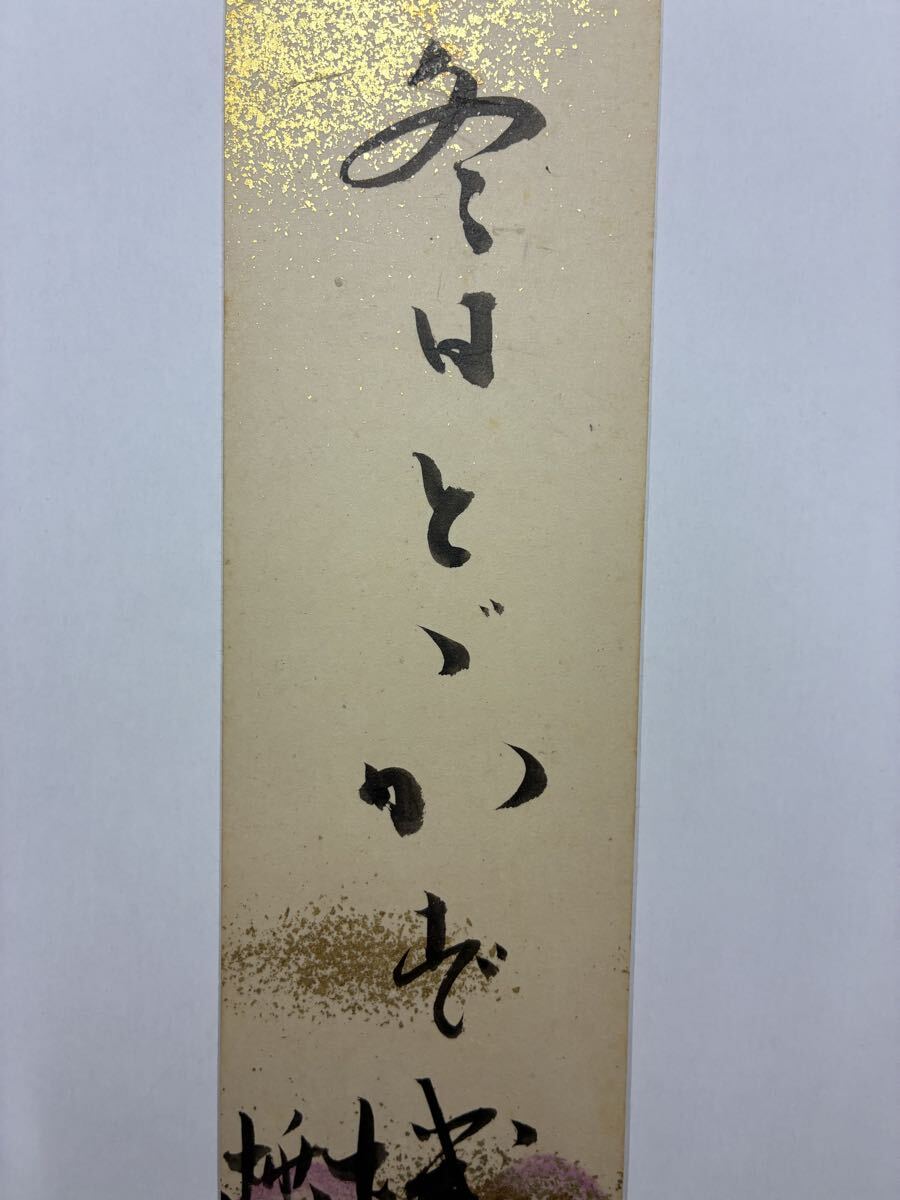 冬日とゞかず